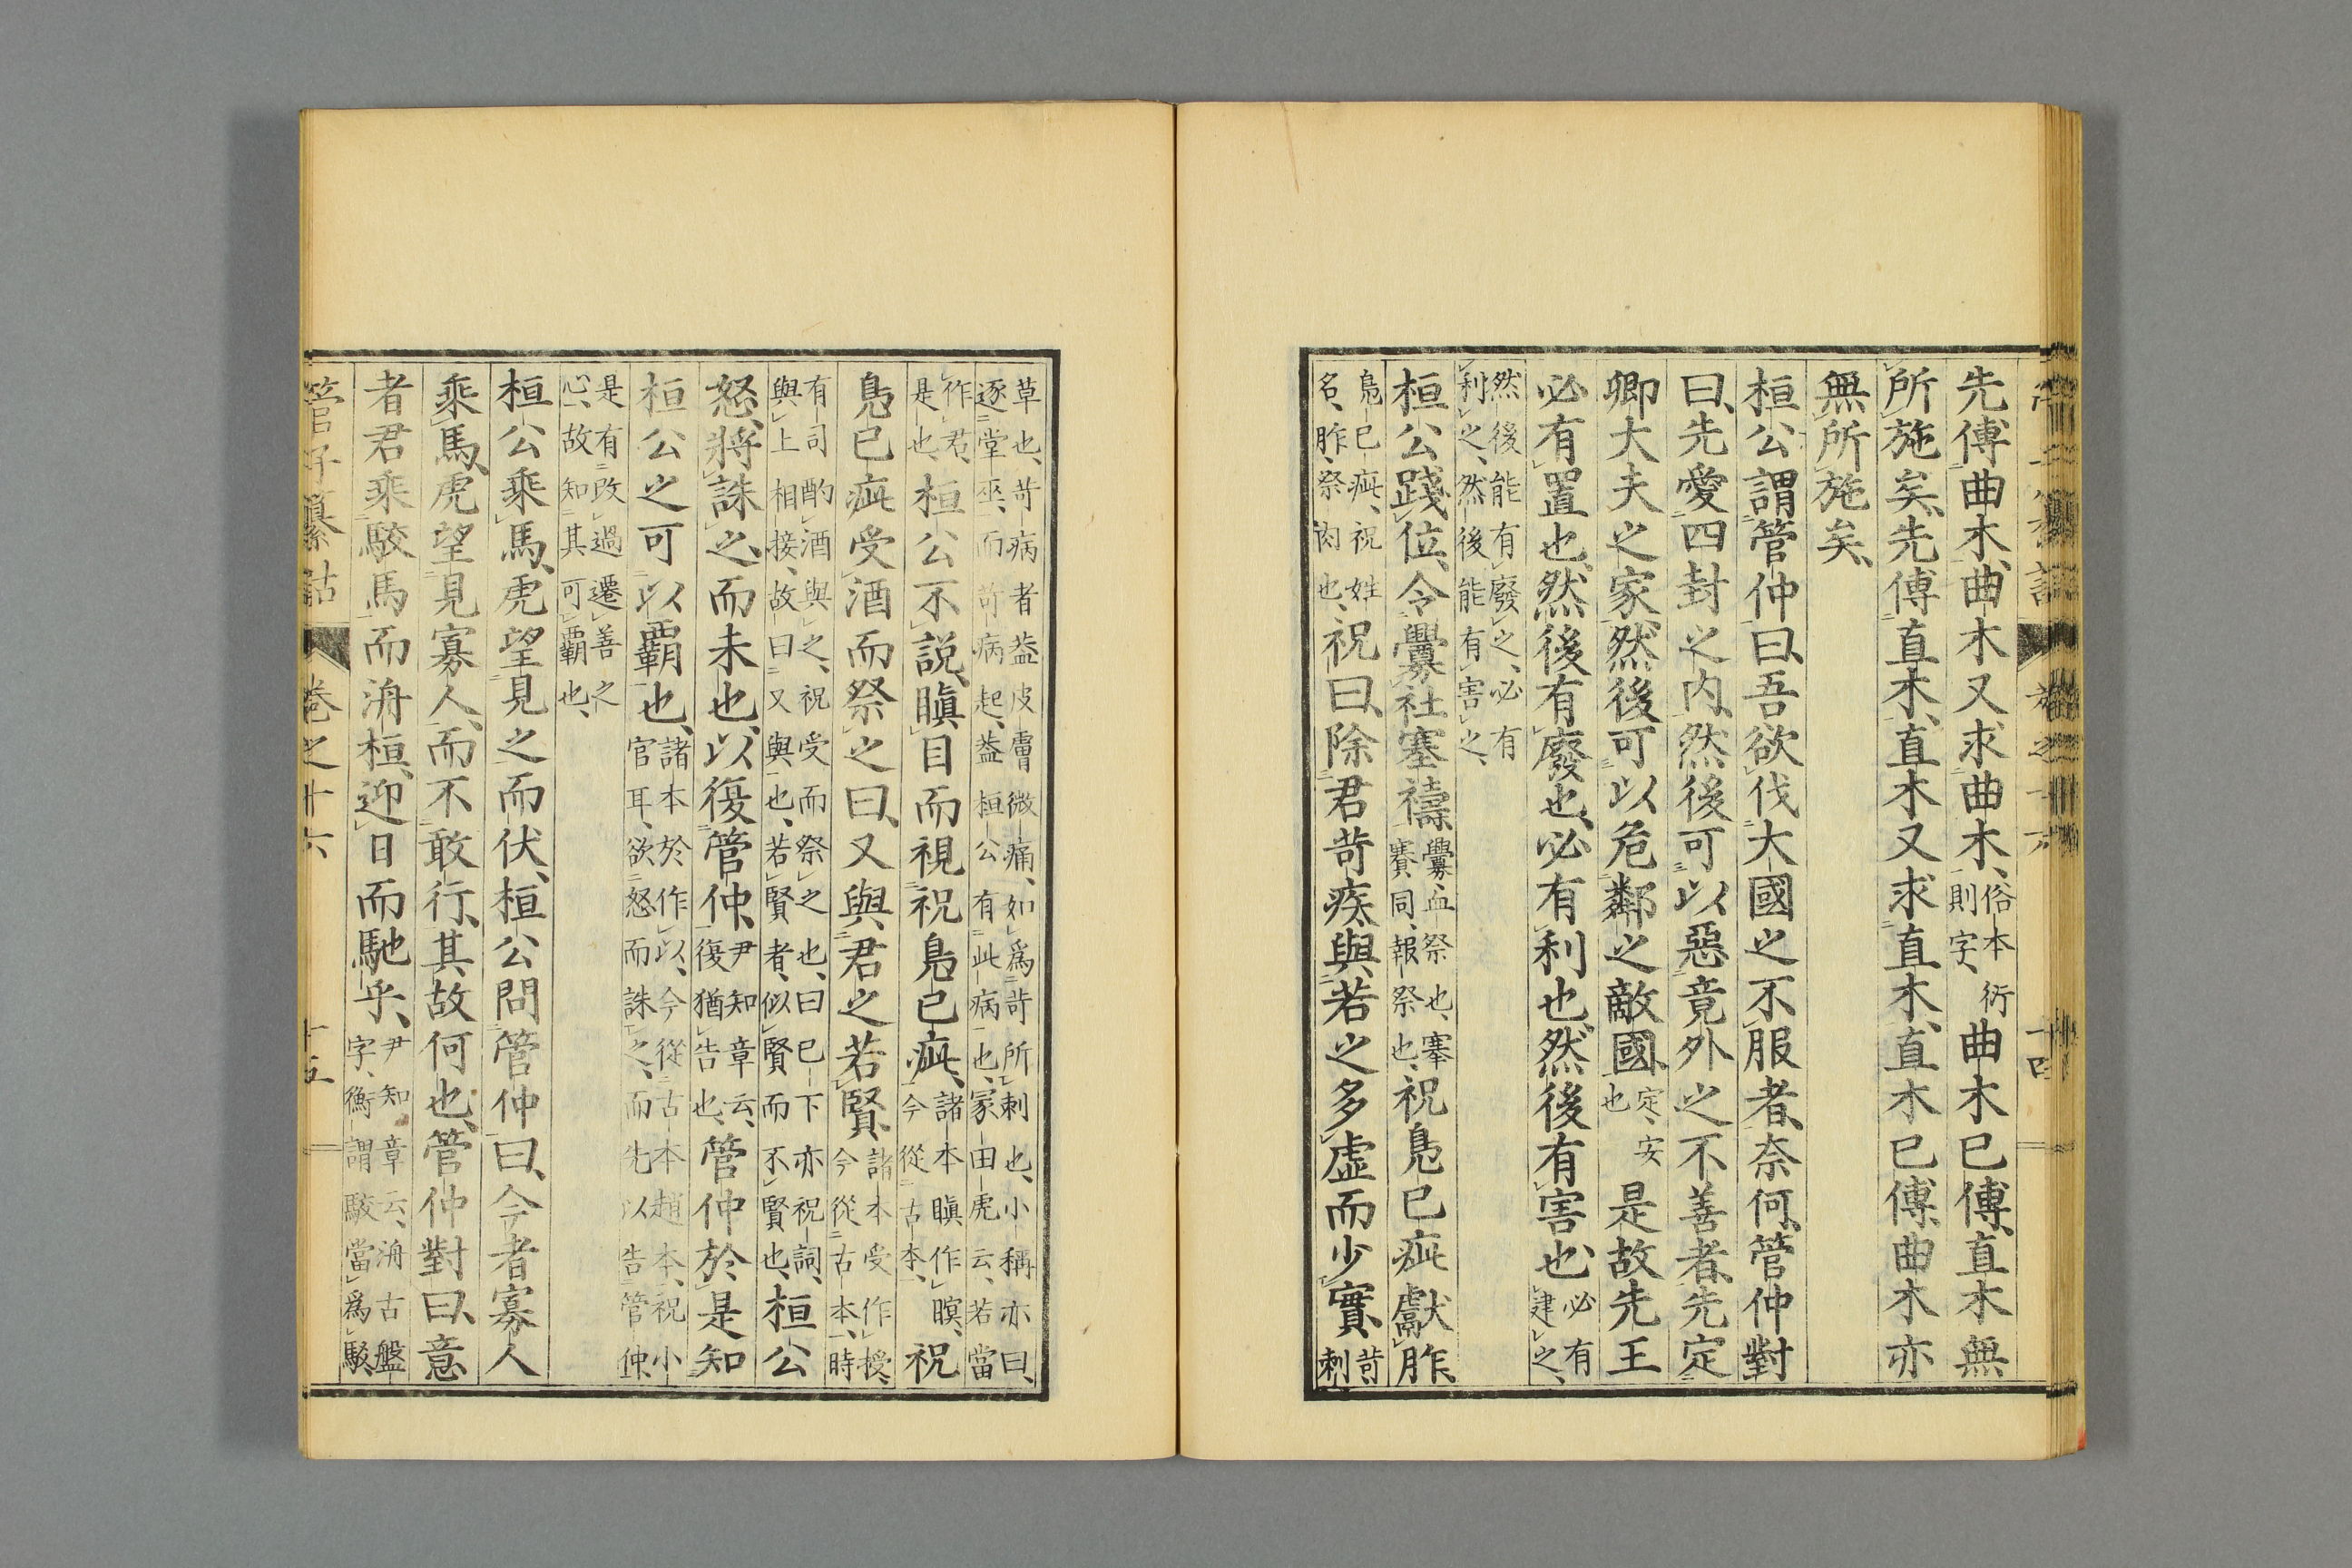 先傅曲木、曲木又求曲木、俗本則字、衍曲木已傅、直木無
所施矣、先傅直木、直木又求直木、直木已傅、曲木亦
無所施矣、
桓公謂管仲曰、吾欲伐大國之不服者、奈何、管仲對
曰、先愛四封之内、然後可以惡竟外之不善者、先定
卿大夫之家、然後可以危鄰之敵國、定、安也是故先王
必有置也、然後有廢也、必有利也、然後有害也、必有建之、
然後能有廢之、必有利之、然後能有害之、
桓公踐位、令釁社塞禱、釁血祭也、塞賽同、報祭也、祝鳧已疵獻胙、
鳧已疵、祝姓名、胙、祭肉也、祝曰、除君苛疾、與若之多虚而少實、苛刺
草也、苛病者盖皮膚微痛、如爲苛所刺也、小稱亦曰、逐堂巫、而苛病起、盖桓公有此病也、冢田虎云、若當
作君、是也、桓公不說、瞋目而視祝鳧已疵、諸本瞋作瞑、今從古本、祝
鳧已疵受酒而祭之曰、又與君之若賢、諸本受作授、今從古本、時
有司酌酒與之、祝受而祭之也、曰已下亦祝詞、與上相接、故曰又與也、若賢者、似賢而不賢也、桓公
怒、將誅之、而未也、以復管仲、尹知章云、復猶告也、管仲於是知
桓公之可以覇也、諸本於作以、今從古本趙本、祝小官耳、欲怒而誅之、而先以告管仲、
是有改過遷善之心、故知其可覇也、
桓公乘馬、虎望見之而伏、桓公問管仲曰、今者寡人
乘馬、虎望見寡人、而不敢行、其故何也、管仲對曰、意
者君乘駮馬而洀桓、迎日而馳乎、尹知章云、洀古盤字、衡謂駮當爲駁、
管子纂詁　卷之十六　十五